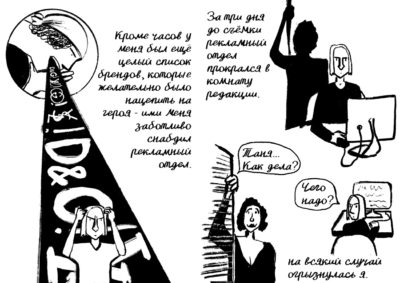 Кроме часов у
меня был ещё
целый список
брендов, которые
желательно было
нацепить на
героя - ими меня
заботливо
снабдил
рекламный
отдел.
D&G!
За три дня
до съёмки
рекламный
отдел
прокрался в
комнату
редакции.
Таня...
Как дела?
Чего
надо?
на всякий случай
огрызнулась я.